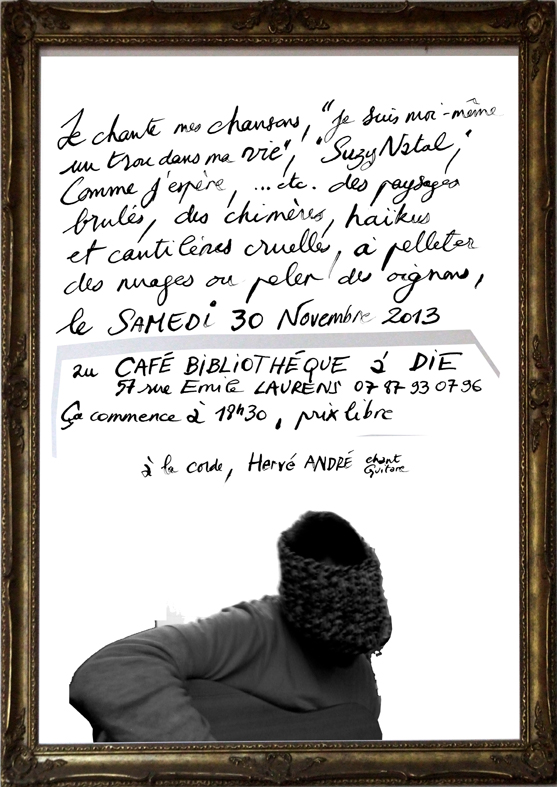 Je chante mes chansons, "je suis moi-même
un trou dans ma vie", "Suzy Natal",
Comme j'espère, ...etc. des paysages
brulés, des chimères, haïkus
et cantilènes cruelles, à pelleter
des nuages ou peler des oignons,
le SAMEDi 30 Novembre 2013
au CAFÉ BiBLiOTHÉQUE à DIE
57 rue Emile LAURENS 07 87 93 07 96
Ça commence à 18h30, prix libre
à la corde, Hervé ANDRÉ chant
Guitare